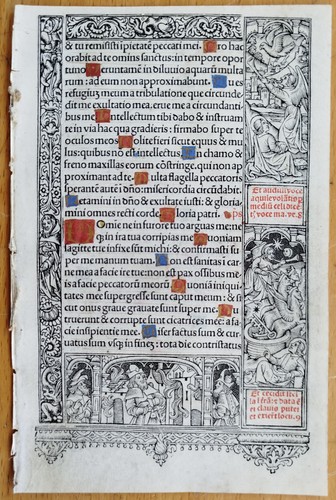 & tu remisisti ĩpietatẽ peccati mei. Pro hac
orabit ad te omnis sanctus: in tempore opor
tuno Verũtamẽ in diluuio aquarũ multa
rum: ad eum non approximabunt. Tu es
refugiũ meum a tribulatione que circunde
dit me exultatio mea, erue me a circundanti
bus me Intellectum tibi dabo & instruam
te in via hac qua gradieris: firmabo super te
oculos meos Nolite fieri sicut equus & mu
lus: quibus no est intellectus. In chamo &
freno maxillas eorum cõstringe, qui non ap
proximant ad te. Multa flagella peccatoris
sperantẽ autẽ ĩ dño: misericordia circũdabit.
Letamini in dñõ & exultate iusti: & gloria
mini omnes recti corde Gloria patri. ps
Domine ne in furore tuo arguas me: ne
q; in ira tua corripias me Quoniam
sagitte tue infixe sũt michi: & confirmasti su
per me manum tuam. Non est sanitas i car
ne mea a facie ire tue: non est pax ossibus me
is a facie peccatorũ meorũ Quoniã iniqui
tates mee supergresse sunt caput meum: & si
cut onus graue grauate sunt super me. Pu
truerunt & corrupte sunt cicatrices mee: a fa
cie insipientie mee. Miser factus sum & cur
uatus sum vsq; in finẽ: tota die contristatus
Et audiui voce
aquile volãtis p
mediũ celi dicẽ
tᷤ voce ma. ve. 8
Et cecidit stel
la
et clauis putei